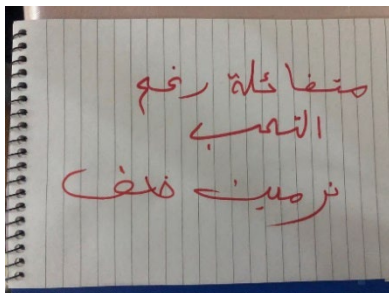 متفائلة رغم
التعب
نرمين خلف